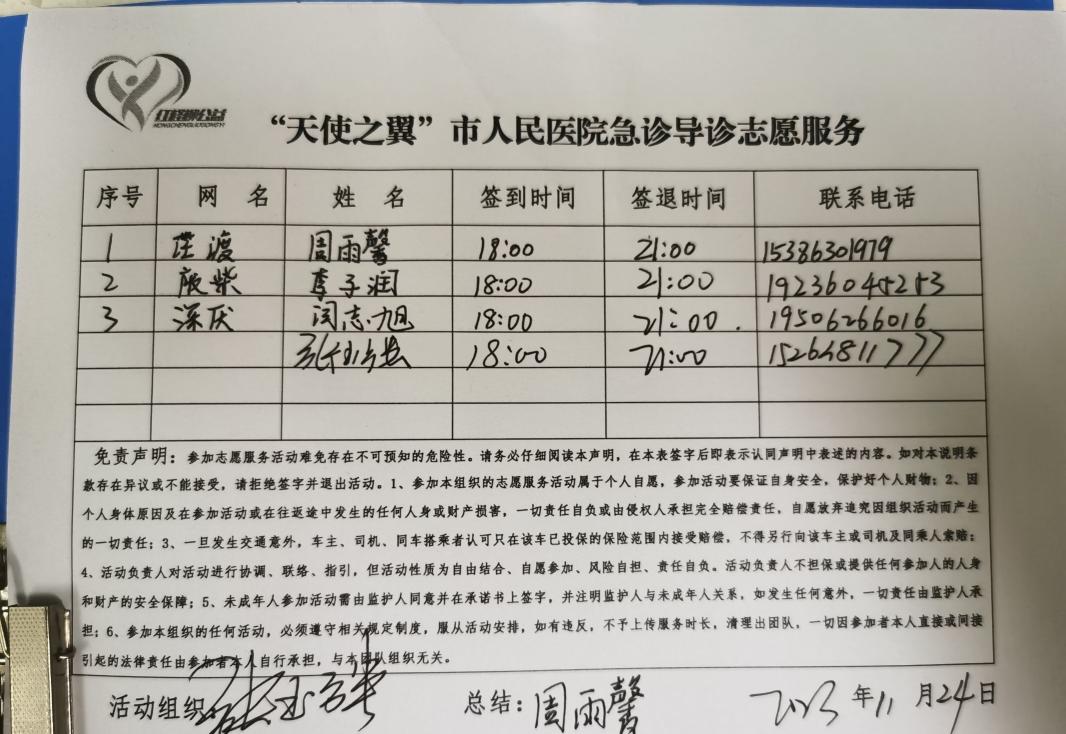 红橙柳公益
HONGCHENGLIUGONGYI
“天使之翼”市人民医院急诊导诊志愿服务
序号 网 名 姓 名 签到时间 签退时间 联系电话
1 茳渡 周雨馨 18:00 21:00 15386301979
2 殿柴 李子润 18:00 21:00 19236045253
3 深厌 闵志旭 18:00 21:00. 19506266016
18:00 21:00 15264811777
免责声明：参加志愿服务活动难免存在不可预知的危险性。请务必仔细阅读本声明，在本表签字后即表示认同声明中表述的内容。如对本说明条
款存在异议或不能接受，请拒绝签字并退出活动。1、参加本组织的志愿服务活动属于个人自愿，参加活动要保证自身安全，保护好个人财物；2、因
个人身体原因及在参加活动或在往返途中发生的任何人身或财产损害，一切责任自负或由侵权人承担完全赔偿责任，自愿放弃追究因组织活动而产生
的一切责任；3、一旦发生交通意外，车主、司机、同车搭乘者认可只在该车已投保的保险范围内接受赔偿，不得另行向该车主或司机及同乘人索赔；
4、活动负责人对活动进行协调、联络、指引，但活动性质为自由结合、自愿参加、风险自担、责任自负。活动负责人不担保或提供任何参加人的人身
和财产的安全保障；5、未成年人参加活动需由监护人同意并在承诺书上签字，并注明监护人与未成年人关系，如发生任何意外，一切责任由监护人承
担；6、参加本组织的任何活动，必须遵守相关规定制度，服从活动安排，如有违反，不予上传服务时长，清理出团队，一切因参加者本人直接或间接
引起的法律责任由参加者本人自行承担，与本团队组织无关。
活动组织： 总结：周雨馨 2023年11月24日